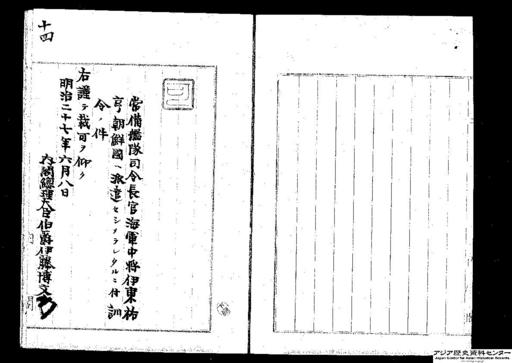 常備艦隊司令長官海軍中将伊東祐
亨朝鮮國ヘ派遣セシメラレタルニ付訓
令ノ件
右謹テ裁可ヲ仰ク
明治二十七年六月八日
内閣總理大臣伯爵伊藤博文
十四
アジア歴史資料センター
Japan Center for Asian Historical Records